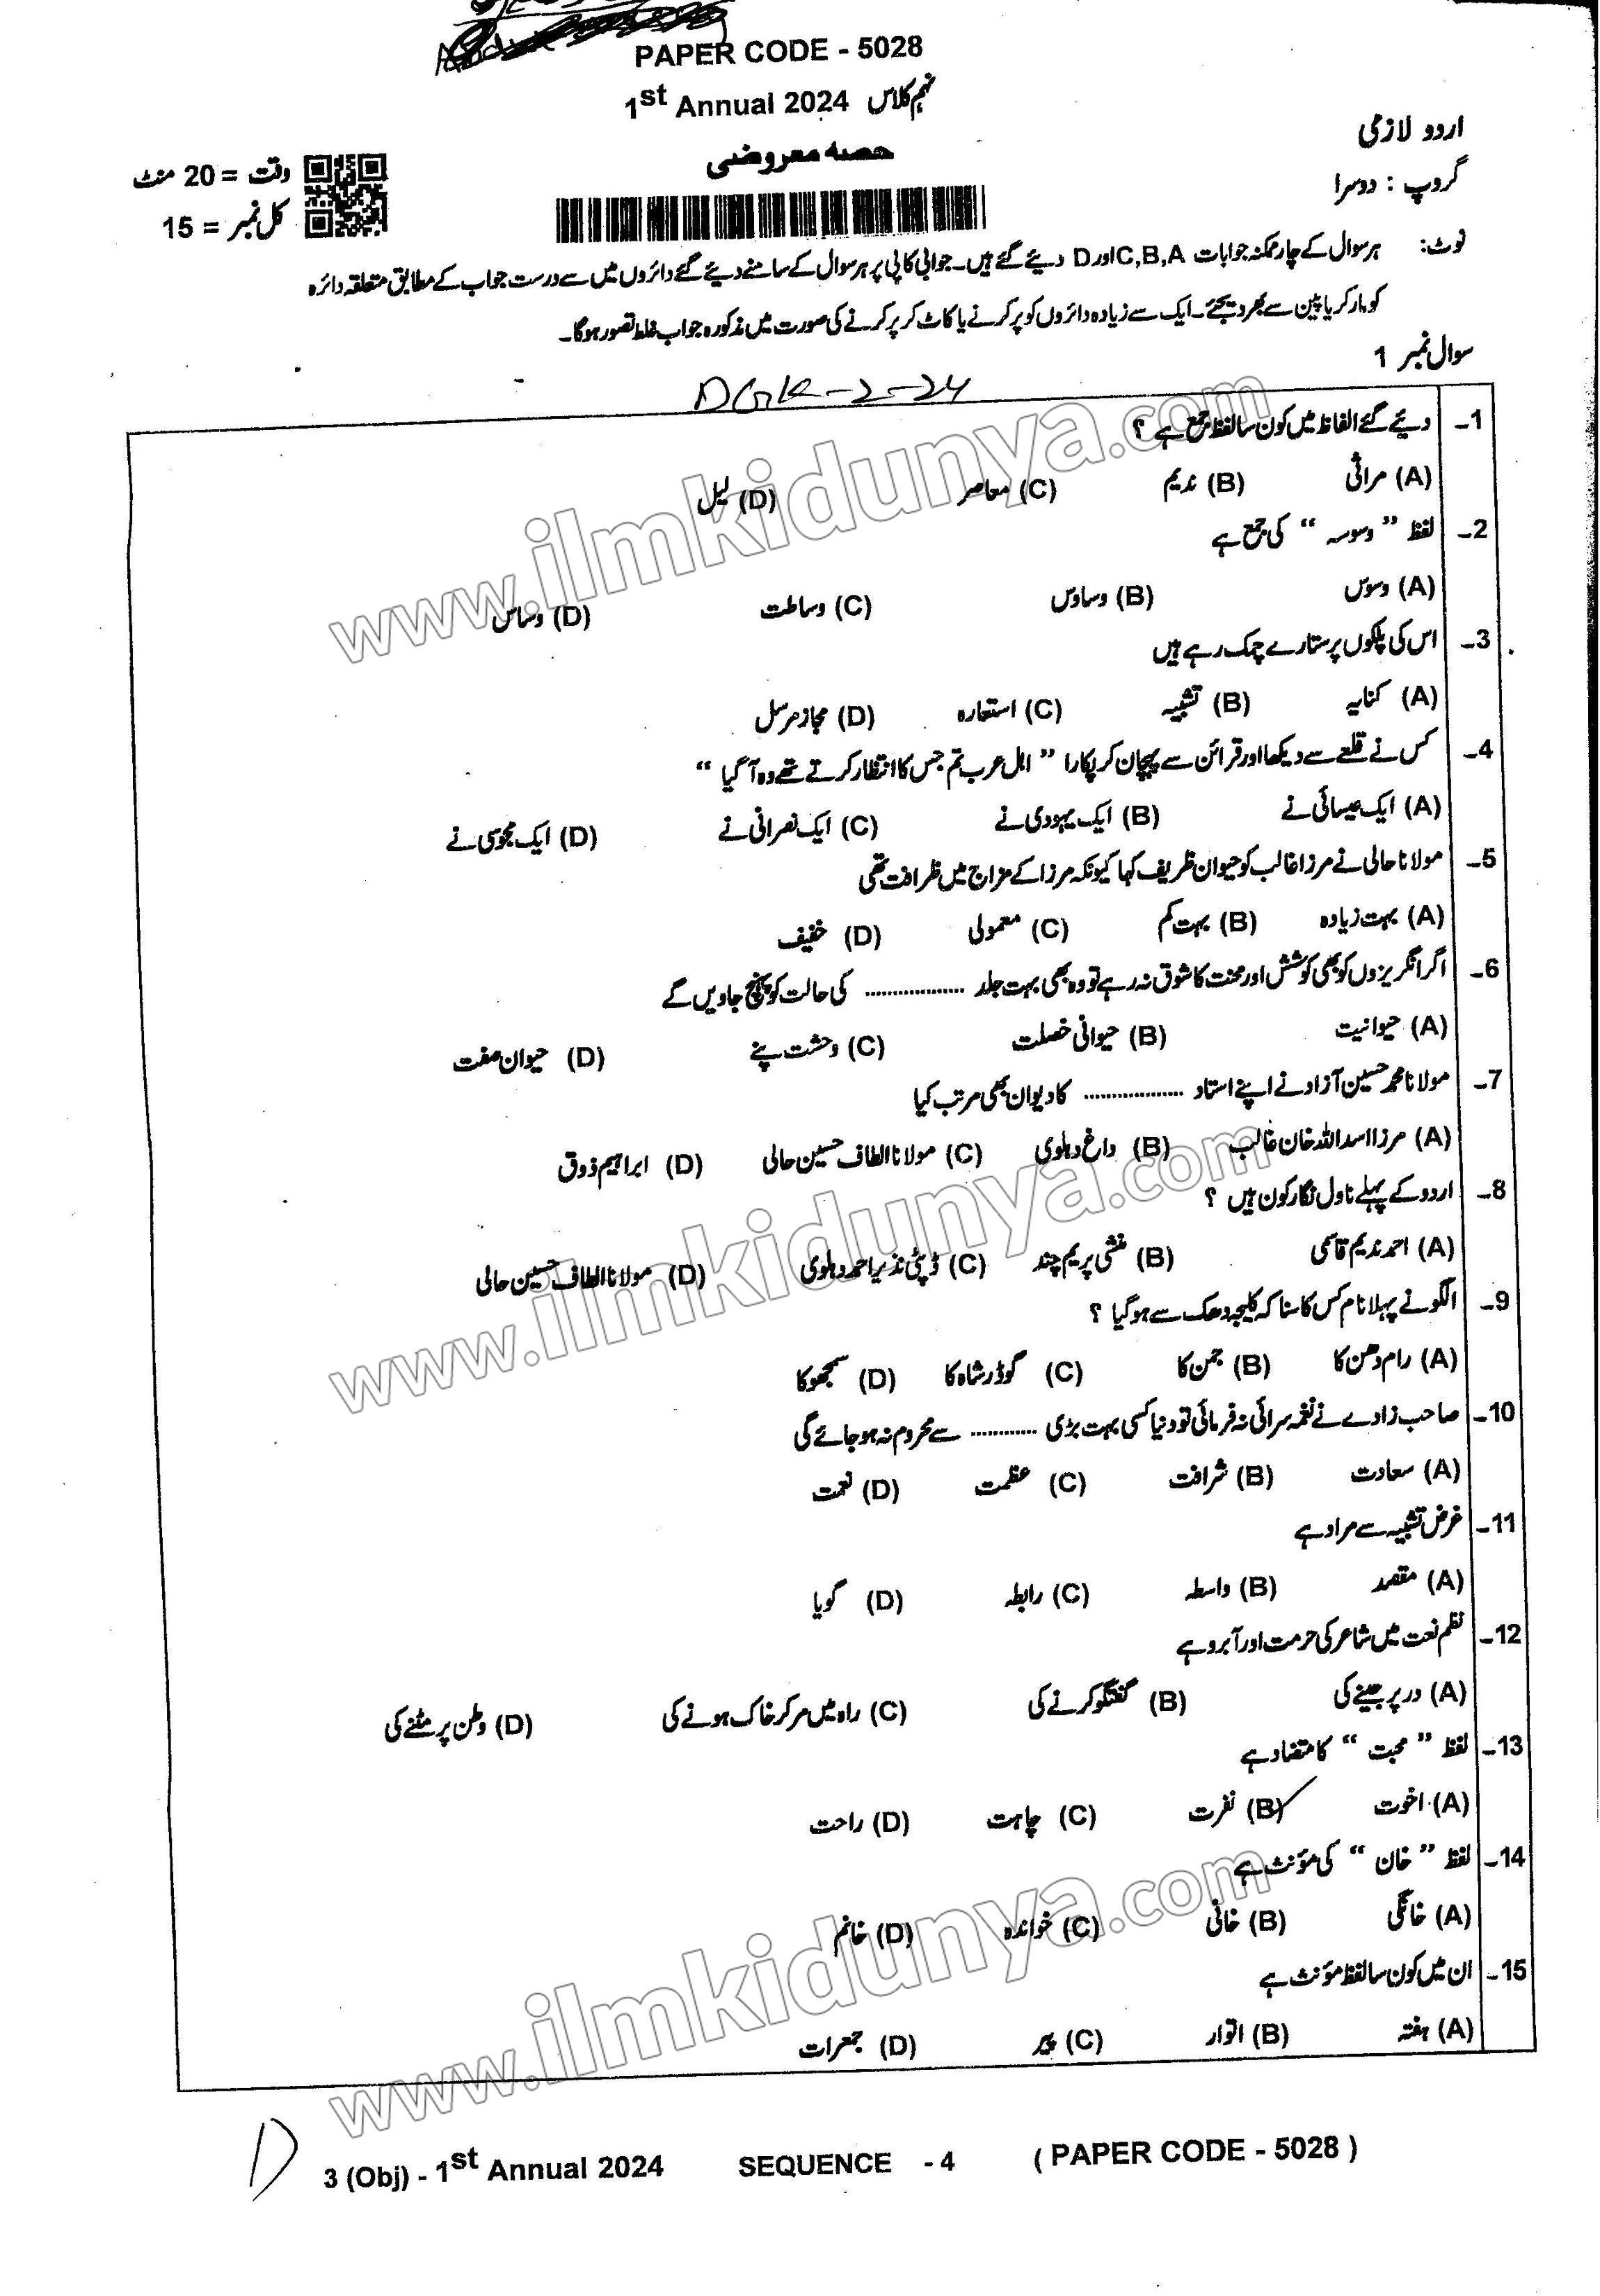 PAPER CODE - 5028
1st Annual 2024 نہم کلاس
اردو لازمی
حصہ معروضی
گروپ : دوسرا
وقت = 20 منٹ
کل نمبر = 15
نوٹ: ہر سوال کے چار ممکنہ جوابات C,B,A اور D دیئے گئے ہیں۔ جوابی کاپی پر ہر سوال کے سامنے دیئے گئے دائروں میں سے درست جواب کے مطابق متعلقہ دائرہ
کو مارکر یا پین سے بھر دیجئے۔ ایک سے زیادہ دائروں کو پر کرنے یا کاٹ کر پر کرنے کی صورت میں مذکورہ جواب غلط تصور ہو گا۔
سوال نمبر 1
DGK-2-24
1۔ دیئے گئے الفاظ میں کون سا لفظ جمع ہے ؟
(A) مراثی (B) ندیم (C) معاصر (D) لیل
2۔ لفظ " وسوسہ " کی جمع ہے
(A) وسوس (B) وساوس (C) وساطت (D) وساس
3۔ اس کی پلکوں پر ستارے چمک رہے ہیں
(A) کنایہ (B) تشبیہ (C) استعارہ (D) مجاز مرسل
4۔ کس نے قلعے سے دیکھا اور قرائن سے پہچان کر پکارا " اہل عرب تم جس کا انتظار کرتے تھے وہ آ گیا "
(A) ایک عیسائی نے (B) ایک یہودی نے (C) ایک نصرانی نے (D) ایک مجوسی نے
5۔ مولانا حالی نے مرزا غالب کو حیوان ظریف کہا کیونکہ مرزا کے مزاج میں ظرافت تھی
(A) بہت زیادہ (B) بہت کم (C) معمولی (D) خفیف
6۔ اگر انگریزوں کو بھی کوشش اور محنت کا شوق نہ رہے تو وہ بھی بہت جلد .................. کی حالت کو پہنچ جاویں گے
(A) حیوانیت (B) حیوانی خصلت (C) وحشت پنے (D) حیوان صفت
7۔ مولانا محمد حسین آزاد نے اپنے استاد .................. کا دیوان بھی مرتب کیا
(A) مرزا اسد اللہ خان غالب (B) داغ دہلوی (C) مولانا الطاف حسین حالی (D) ابراہیم ذوق
8۔ اردو کے پہلے ناول نگار کون ہیں ؟
(A) احمد ندیم قاسمی (B) منشی پریم چند (C) ڈپٹی نذیر احمد دہلوی (D) مولانا الطاف حسین حالی
9۔ الگو نے پہلا نام کس کا سنا کہ کلیجہ دھک سے ہو گیا ؟
(A) رام دھن کا (B) جمن کا (C) گوڈر شاہ کا (D) سمجھو کا
10۔ صاحب زادے نے نغمہ سرائی نہ فرمائی تو دنیا کسی بہت بڑی ............ سے محروم نہ ہو جائے گی
(A) سعادت (B) شرافت (C) عظمت (D) نعمت
11۔ غرض تشبیہ سے مراد ہے
(A) مقصد (B) واسطہ (C) رابطہ (D) گویا
12۔ نظم نعت میں شاعر کی حرمت اور آبرو ہے
(A) در پر جینے کی (B) گفتگو کرنے کی (C) راہ میں مر کر خاک ہونے کی (D) وطن پر مٹنے کی
13۔ لفظ " محبت " کا متضاد ہے
(A) اخوت (B) نفرت (C) چاہت (D) راحت
14۔ لفظ " خان " کی مؤنث ہے
(A) خانگی (B) خانی (C) خواندہ (D) خانم
15۔ ان میں کون سا لفظ مؤنث ہے
(A) ہفتہ (B) اتوار (C) پیر (D) جمعرات
www.ilmkidunya.com
www.ilmkidunya.com
www.ilmkidunya.com
D
3 (Obj) - 1st Annual 2024 SEQUENCE - 4 ( PAPER CODE - 5028 )